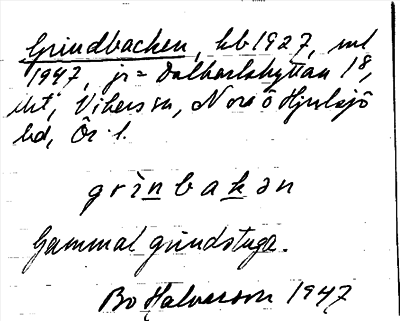 Grindbacken, hb 1927, ml
1947, jr = Dalkarlshyttan 1⁸,
Vikers sn, Nora o Hjulsjö
bd, Ör. l.
grinbakən
Gammal grindstuga.
Bo Halvarson 1947